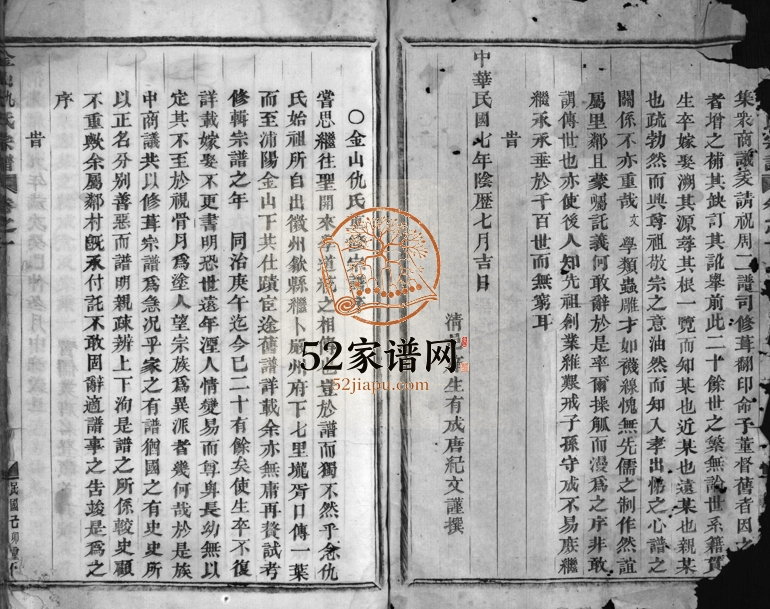 集衆商議爰請祝周二譜司修葺翻印命予董督舊者因之
者增之補其缺訂其訛舉前此二十餘世之繁無論世系籍貫
生卒嫁娶溯其源尋其根一覽而知某也近某也遠某也親某
也疏勃然而興尊祖敬宗之意油然而知入孝出悌之心譜之
關係不亦重哉文學類蟲雕才如襪線愧無先儒之制作然誼
屬里鄰且蒙囑託義何敢辭於是率爾操觚而漫為之序非敢
謂傳世也亦使後人知先祖創業維艱戒子孫守成不易庶繼
繼承承垂於千百世而無窮耳
旹
中華民國七年陰歷七月吉日
清邑生有成唐紀文謹撰
○金山仇氏宗譜
嘗思繼往聖開來學道統之相豈於譜而獨不然乎念仇
氏始祖所自出徽州歙縣繼卜嚴州府下七里壠胥口傳一葉
而至浦陽金山下其仕蹟宦途舊譜詳載余亦無庸再贅試考
修輯宗譜之年 同治庚午迄今已二十有餘矣使生卒不復
詳載嫁娶不更書明恐世遠年湮人情變易而尊卑長幼無以
定其不至於視骨月為塗人望宗族為異派者幾何哉於是族
中商議共以修葺宗譜為急況乎家之有譜猶國之有史史所
以正名分別善惡而譜明親疎辨上下洵是譜之所係較史顧
不重歟余屬鄰村既承付託不敢固辭適譜事之告竣是為之
序
旹
金山仇氏宗譜
卷之一
民國己卯重
52家谱网
52jiapu.com